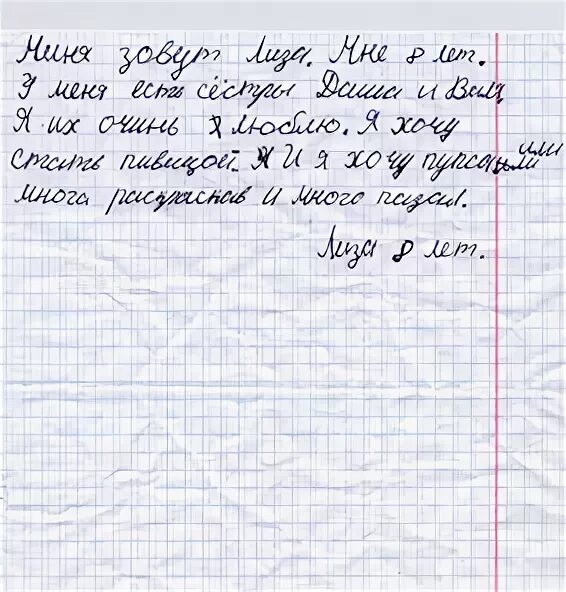 Миня зовут Лиза. Мне 8 лет.
У меня есть сёстры Даша и Валя.
Я их очинь люблю. Я хочу
стать пивицой. И я хочу пупса или
многа раскрасав и много пазал.
Лиза 8 лет.